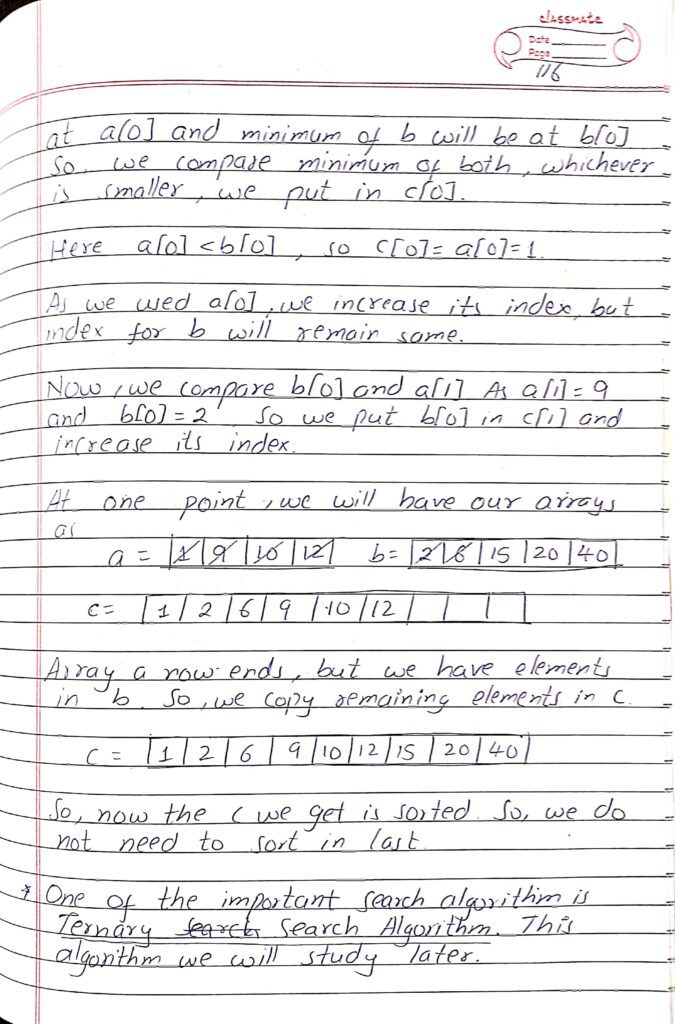 classmate
Date
Page
116
at a[0] and minimum of b will be at b[0]
So, we compare minimum of both, whichever
is smaller, we put in c[0].
Here a[0] < b[0], so c[0] = a[0] = 1.
As we used a[0], we increase its index, but
index for b will remain same.
Now, we compare b[0] and a[1] As a[1] = 9
and b[0] = 2 So we put b[0] in c[1] and
increase its index.
At one point, we will have our arrays
as
a = |1|9|10|12| b = |2|6|15|20|40|
c = |1|2|6|9|10|12| | | |
Array a now ends, but we have elements
in b. So, we copy remaining elements in c.
c = |1|2|6|9|10|12|15|20|40|
So, now the c we get is sorted. So, we do
not need to sort in last.
* One of the important search algorithm is
Ternary search Search Algorithm. This
algorithm we will study later.